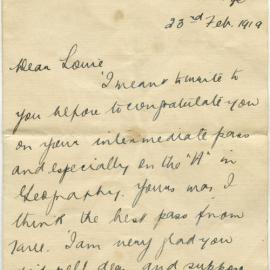 23rd Feb. 1919
Dear Louie
I meant to write to
you before to congratulate you
on your intermediate pass
and especially on the "A" in
Geography. Yours was I
think the best pass from
Taree. I am very glad you
did well dear and suppose